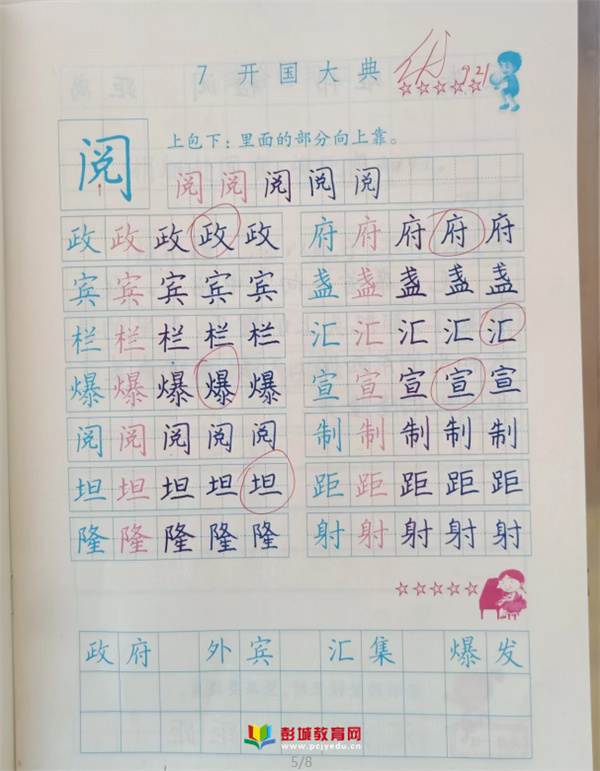 7 开国大典
优 9.21
☆☆☆☆☆
阅
上包下：里面的部分向上靠。
阅阅阅阅阅
政政政政政 府府府府府
宾宾宾宾宾 盏盏盏盏盏
栏栏栏栏栏 汇汇汇汇汇
爆爆爆爆爆 宣宣宣宣宣
阅阅阅阅阅 制制制制制
坦坦坦坦坦 距距距距距
隆隆隆隆隆 射射射射射
☆☆☆☆☆
政府 外宾 汇集 爆发
彭城教育网
www.pcjyedu.cn
5/8